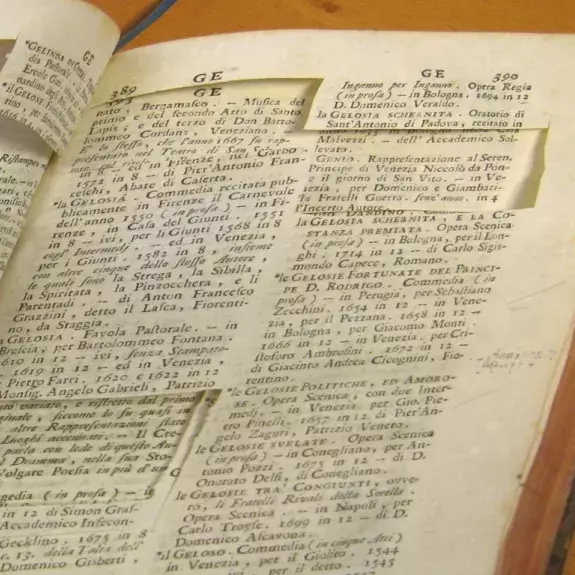 GE
*GELINDA
dia Pastorale
Ercole
nardino degli
*il GELOSO
rino, per
Ristampa
389 GE
GE
nato, Bergamasco. – Musica del
primo e del secondo Atto di Santo
Lapis; e del terzo di Don Barto-
lommeo Cordans, Veneziano. –
lo stesso, che l'anno 1667 fu rap-
presentato nel Teatro di San
in 8 – ed in Firenze, nel Giardo
1572 in 8 – di Pier'Antonio Fran-
ceschi, Abate di Caleria.
*la GELOSIA. Commedia recitata pub-
blicamente in Firenze il Carnevole
dell'anno 1550 (in prosa) – in Fi-
renze, in Casa del Giunti. 1551
in 8 – ivi, per i Giunti 1568 in 8
cogl'Intermedj. – ed in Venezia,
per i Giunti 1582 in 8, insieme
con altre cinque dello stesso Autore,
le quali sono la Strega, la Sibilla,
la Spiritata, la Pinzocchera, e li
Parentadi. – di Anton Francesco
Grazzini, detto il Lasca, Fiorenti-
no, da Staggia.
la GELOSIA. Favola Pastorale. – in
Brescia, per Bartolommeo Fontana.
1610 in 12 – ivi, senza Stampato-
1619 in 12 – ed in Venezia,
Pietro Farri. 1620 e 1622 in 12
Monsig. Angelo Gabrieli, Patrizio
variato, e ristretto dal primo
ginale, siccome lo fu quasi in
altre Rappresentazioni state
Luoghi accennati. – Il Cre-
parla con lode di questo Au-
Dramma, nella sua Sto-
Volgare Poesia in più d'un
gedia (in prosa) – in
in 12 di Simon Graf-
Accademico Infecon-
Gecklino. 1675 in 8
c. 13. della Tassa dell'
Domenico Gisberti,
GE 390
Inganno per Inganno. Opera Regia
(in prosa) – in Bologna. 1694 in 12
D. Domenico Veraldo.
la GELOSIA SCHERNITA. Oratorio di
Sant'Antonio di Padova, recitato in
Malvezzi. – dell'Accademico Sol-
levato.
GENIO. Rappresentazione al Seren.
Principe di Venezia Niccolò da Pon-
e il giorno di San Vito. – in Ve-
ezia, per Domenico e Giambati-
la Fratelli Guerra. senz'anno. in 4
l'Incerto Autore.
la GELOSIA SCHERNITA, E LA CO-
STANZA PREMIATA. Opera Scenica
(in prosa) – in Bologna, per il Lon-
ghi. 1714 in 12 – di Carlo Sigis-
mondo Capece, Romano.
*le GELOSIE FORTUNATE DEL PRINCI-
PE D. RODRIGO. Commedia (in
prosa) – in Perugia, per Sebastiano
Zecchini. 1654 in 12 – in Vene-
zia, per il Pezzana. 1658 in 12 –
in Bologna, per Giacomo Monti.
1666 in 12 – in Venezia, per Cri-
stoforo Ambrosini. 1672 in 12 –
di Giacinto Andrea Cicognini, Fio-
rentino.
*le GELOSIE POLITICHE, ED AMORO-
SE. Opera Scenica, con due Inter-
medj. – in Venezia per Gio. Pie-
tro Pinelli. 1657 in 12. di Pier'An-
gelo Zaguri, Patrizio Veneto.
le GELOSIE SVELATE. Opera Scenica
(in prosa) – in Conegliano, per An-
tonio Pozzi. 1675 in 12 – di D.
Onorato Delfi, di Conegliano.
le GELOSIE TRA CONGIUNTI, ovve-
ro, li Fratelli Rivali dalla Sorella.
Opera Scenica – in Napoli, per
Carlo Troyse. 1699 in 12 – di D.
Domenico Alcavona.
*il GELOSO. Commedia (in cinque Atti)
– in Venezia, per il Giolito. 1544
in 12 – ivi, per il detto. 1545